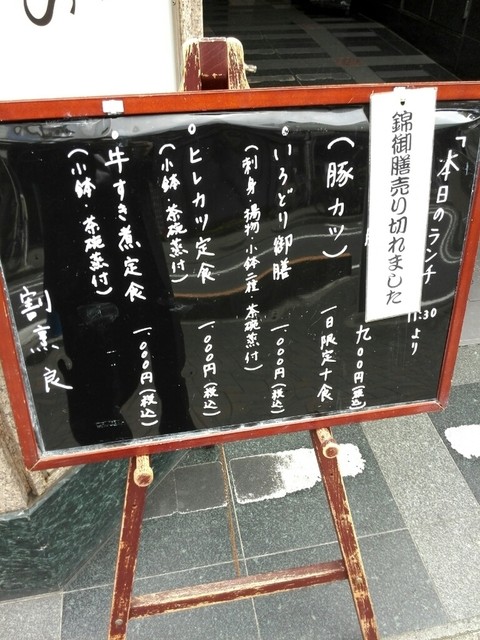 「本日のランチ
11:30より
錦御膳売り切れました
九〇〇円(税込)
(豚カツ)
一日限定十食
・いろどり御膳
(刺身・揚物・小鉢二種・茶碗蒸付)
一、〇〇〇円(税込)
・ヒレカツ定食
(小鉢・茶碗蒸付)
一、〇〇〇円(税込)
・牛すき煮定食
(小鉢・茶碗蒸付)
一、〇〇〇円(税込)
割烹 良